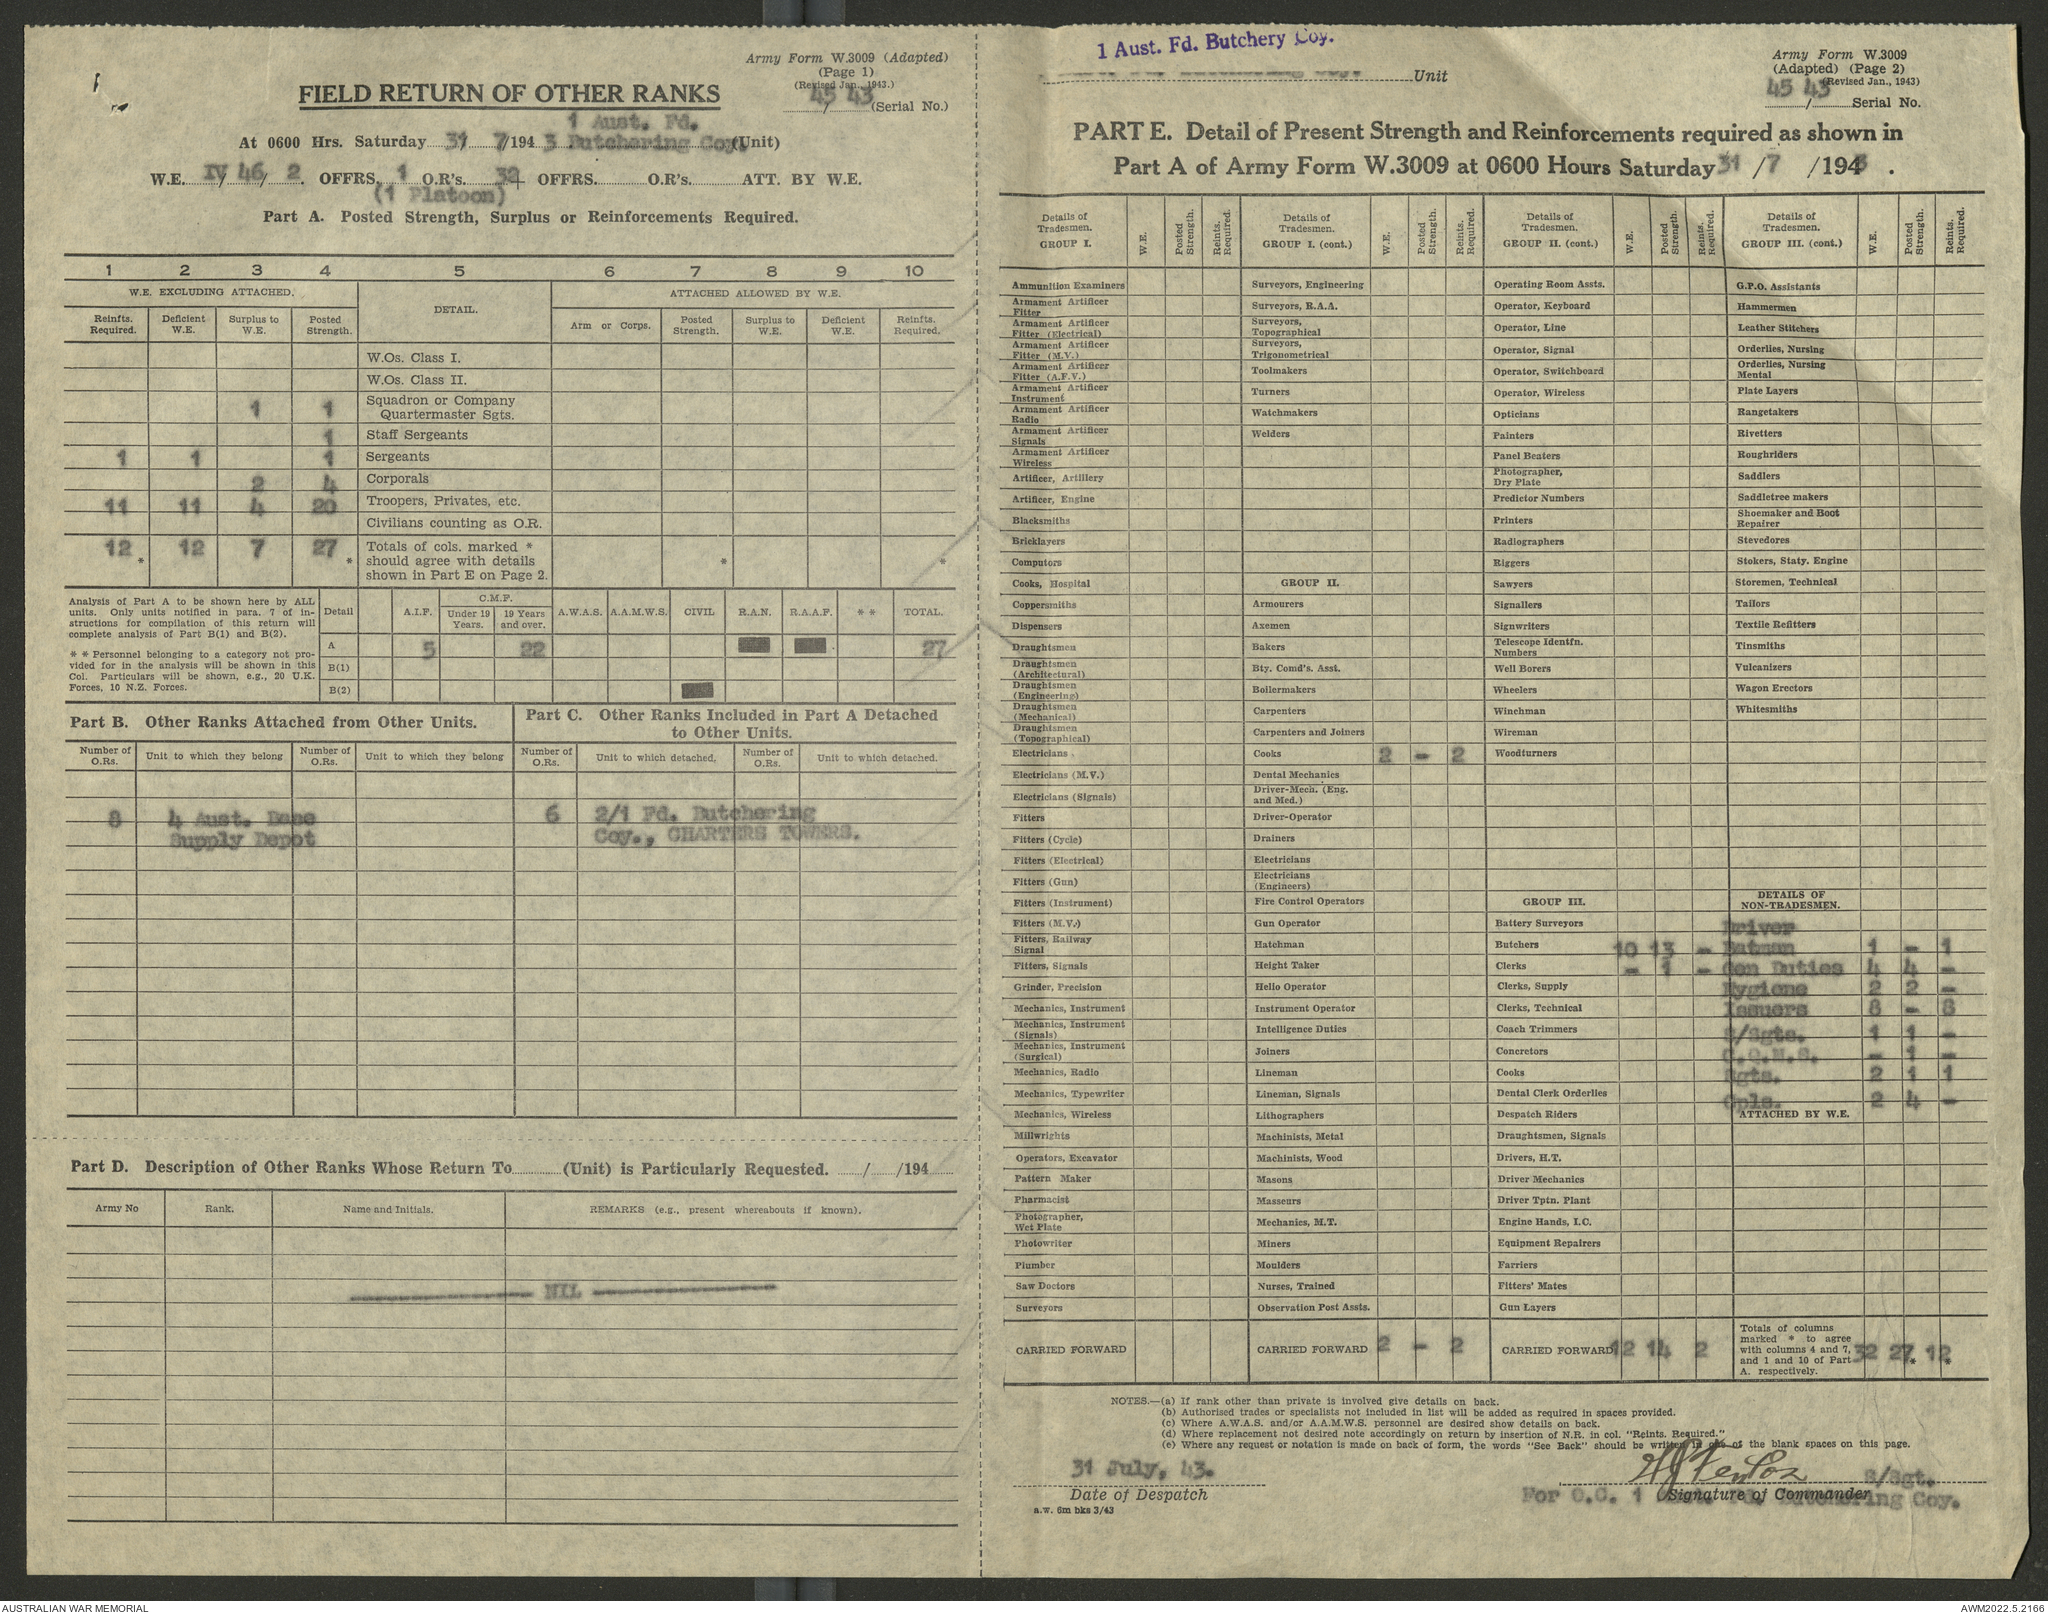 Army Form W.3009 (Adapted)
(Page 1)
(Revised Jan., 1943.)
45/43 (Serial No.)
FIELD RETURN OF OTHER RANKS
1 Aust. Fd.
At 0600 Hrs. Saturday 31 7/1943 Butchering Coy. (Unit)
W.E. IV/46/2. OFFRS. 1 O.R's. 32 OFFRS. O.R's. ATT. BY W.E.
(1 Platoon)
Part A. Posted Strength, Surplus or Reinforcements Required.
1 2 3 4 5 6 7 8 9 10
W.E. EXCLUDING ATTACHED. DETAIL. ATTACHED ALLOWED BY W.E.
Reinfts. Required. Deficient W.E. Surplus to W.E. Posted Strength. Arm or Corps. Posted Strength. Surplus to W.E. Deficient W.E. Reinfts. Required.
W.Os. Class I.
W.Os. Class II.
1 1 Squadron or Company Quartermaster Sgts.
1 Staff Sergeants
1 1 1 Sergeants
2 4 Corporals
11 11 4 20 Troopers, Privates, etc.
Civilians counting as O.R.
12 * 12 7 27 * Totals of cols. marked * should agree with details shown in Part E on Page 2. * *
Analysis of Part A to be shown here by ALL
units. Only units notified in para. 7 of in-
structions for compilation of this return will
complete analysis of Part B(1) and B(2).
* * Personnel belonging to a category not pro-
vided for in the analysis will be shown in this
Col. Particulars will be shown, e.g., 20 U.K.
Forces, 10 N.Z. Forces.
Detail A.I.F. C.M.F. Under 19 Years. 19 Years and over. A.W.A.S. A.A.M.W.S. CIVIL R.A.N. R.A.A.F. * * TOTAL.
A 5 22 27
B(1)
B(2)
Part B. Other Ranks Attached from Other Units.
Number of O.Rs. Unit to which they belong Number of O.Rs. Unit to which they belong
8 4 Aust. Base
Supply Depot
Part C. Other Ranks Included in Part A Detached
to Other Units.
Number of O.Rs. Unit to which detached. Number of O.Rs. Unit to which detached.
6 2/1 Fd. Butchering
Coy., CHARTERS TOWERS.
Part D. Description of Other Ranks Whose Return To (Unit) is Particularly Requested. / /194
Army No Rank. Name and Initials. REMARKS (e.g., present whereabouts if known).
NIL
1 Aust. Fd. Butchery Coy.
Unit
Army Form W.3009
(Adapted) (Page 2)
(Revised Jan., 1943)
45/43 Serial No.
PART E. Detail of Present Strength and Reinforcements required as shown in
Part A of Army Form W.3009 at 0600 Hours Saturday 31/7/1943.
Details of Tradesmen. GROUP I. W.E. Posted Strength. Reints. Required.
Ammunition Examiners
Armament Artificer Fitter
Armament Artificer Fitter (Electrical)
Armament Artificer Fitter (M.V.)
Armament Artificer Fitter (A.F.V.)
Armament Artificer Instrument
Armament Artificer Radio
Armament Artificer Signals
Armament Artificer Wireless
Artificer, Artillery
Artificer, Engine
Blacksmiths
Bricklayers
Computors
Cooks, Hospital
Coppersmiths
Dispensers
Draughtsmen
Draughtsmen (Architectural)
Draughtsmen (Engineering)
Draughtsmen (Mechanical)
Draughtsmen (Topographical)
Electricians
Electricians (M.V.)
Electricians (Signals)
Fitters
Fitters (Cycle)
Fitters (Electrical)
Fitters (Gun)
Fitters (Instrument)
Fitters (M.V.)
Fitters, Railway Signal
Fitters, Signals
Grinder, Precision
Mechanics, Instrument
Mechanics, Instrument (Signals)
Mechanics, Instrument (Surgical)
Mechanics, Radio
Mechanics, Typewriter
Mechanics, Wireless
Millwrights
Operators, Excavator
Pattern Maker
Pharmacist
Photographer, Wet Plate
Photowriter
Plumber
Saw Doctors
Surveyors
CARRIED FORWARD
Details of Tradesmen. GROUP I. (cont.) W.E. Posted Strength. Reints. Required.
Surveyors, Engineering
Surveyors, R.A.A.
Surveyors, Topographical
Surveyors, Trigonometrical
Toolmakers
Turners
Watchmakers
Welders
GROUP II.
Armourers
Axemen
Bakers
Bty. Comd's. Asst.
Boilermakers
Carpenters
Carpenters and Joiners
Cooks 2 - 2
Dental Mechanics
Driver-Mech. (Eng. and Med.)
Driver-Operator
Drainers
Electricians
Electricians (Engineers)
Fire Control Operators
Gun Operator
Hatchman
Height Taker
Helio Operator
Instrument Operator
Intelligence Duties
Joiners
Lineman
Lineman, Signals
Lithographers
Machinists, Metal
Machinists, Wood
Masons
Masseurs
Mechanics, M.T.
Miners
Moulders
Nurses, Trained
Observation Post Assts.
CARRIED FORWARD 2 - 2
Details of Tradesmen. GROUP II. (cont.) W.E. Posted Strength. Reints. Required.
Operating Room Assts.
Operator, Keyboard
Operator, Line
Operator, Signal
Operator, Switchboard
Operator, Wireless
Opticians
Painters
Panel Beaters
Photographer, Dry Plate
Predictor Numbers
Printers
Radiographers
Riggers
Sawyers
Signallers
Signwriters
Telescope Identfn. Numbers
Well Borers
Wheelers
Winchman
Wireman
Woodturners
GROUP III.
Battery Surveyors
Butchers 10 13 -
Clerks - 1 -
Clerks, Supply
Clerks, Technical
Coach Trimmers
Concretors
Cooks
Dental Clerk Orderlies
Despatch Riders
Draughtsmen, Signals
Drivers, H.T.
Driver Mechanics
Driver Tptn. Plant
Engine Hands, I.C.
Equipment Repairers
Farriers
Fitters' Mates
Gun Layers
CARRIED FORWARD 12 14 2
Details of Tradesmen. GROUP III. (cont.) W.E. Posted Strength. Reints. Required.
G.P.O. Assistants
Hammermen
Leather Stitchers
Orderlies, Nursing
Orderlies, Nursing Mental
Plate Layers
Rangetakers
Rivetters
Roughriders
Saddlers
Saddletree makers
Shoemaker and Boot Repairer
Stevedores
Stokers, Staty. Engine
Storemen, Technical
Tailors
Textile Refitters
Tinsmiths
Vulcanizers
Wagon Erectors
Whitesmiths
DETAILS OF NON-TRADESMEN.
Driver
Batman 1 - 1
Gen Duties 4 4 -
Hygiene 2 2 -
Issuers 8 - 8
S/Sgts. 1 1 -
C.Q.M.S. - 1 -
Sgts. 2 1 1
Cpls. 2 4 -
ATTACHED BY W.E.
Totals of columns marked * to agree with columns 4 and 7, and 1 and 10 of Part A. respectively. 32 27* 12*
NOTES.—(a) If rank other than private is involved give details on back.
(b) Authorised trades or specialists not included in list will be added as required in spaces provided.
(c) Where A.W.A.S. and/or A.A.M.W.S. personnel are desired show details on back.
(d) Where replacement not desired note accordingly on return by insertion of N.R. in col. "Reints. Required."
(e) Where any request or notation is made on back of form, the words "See Back" should be written in one of the blank spaces on this page.
31 July, 43.
Date of Despatch
a.w. 6m bks 3/43
S/Sgt.
Signature of Commander
For O.C. 1 Butchering Coy.
AUSTRALIAN WAR MEMORIAL
AWM2022.5.2166